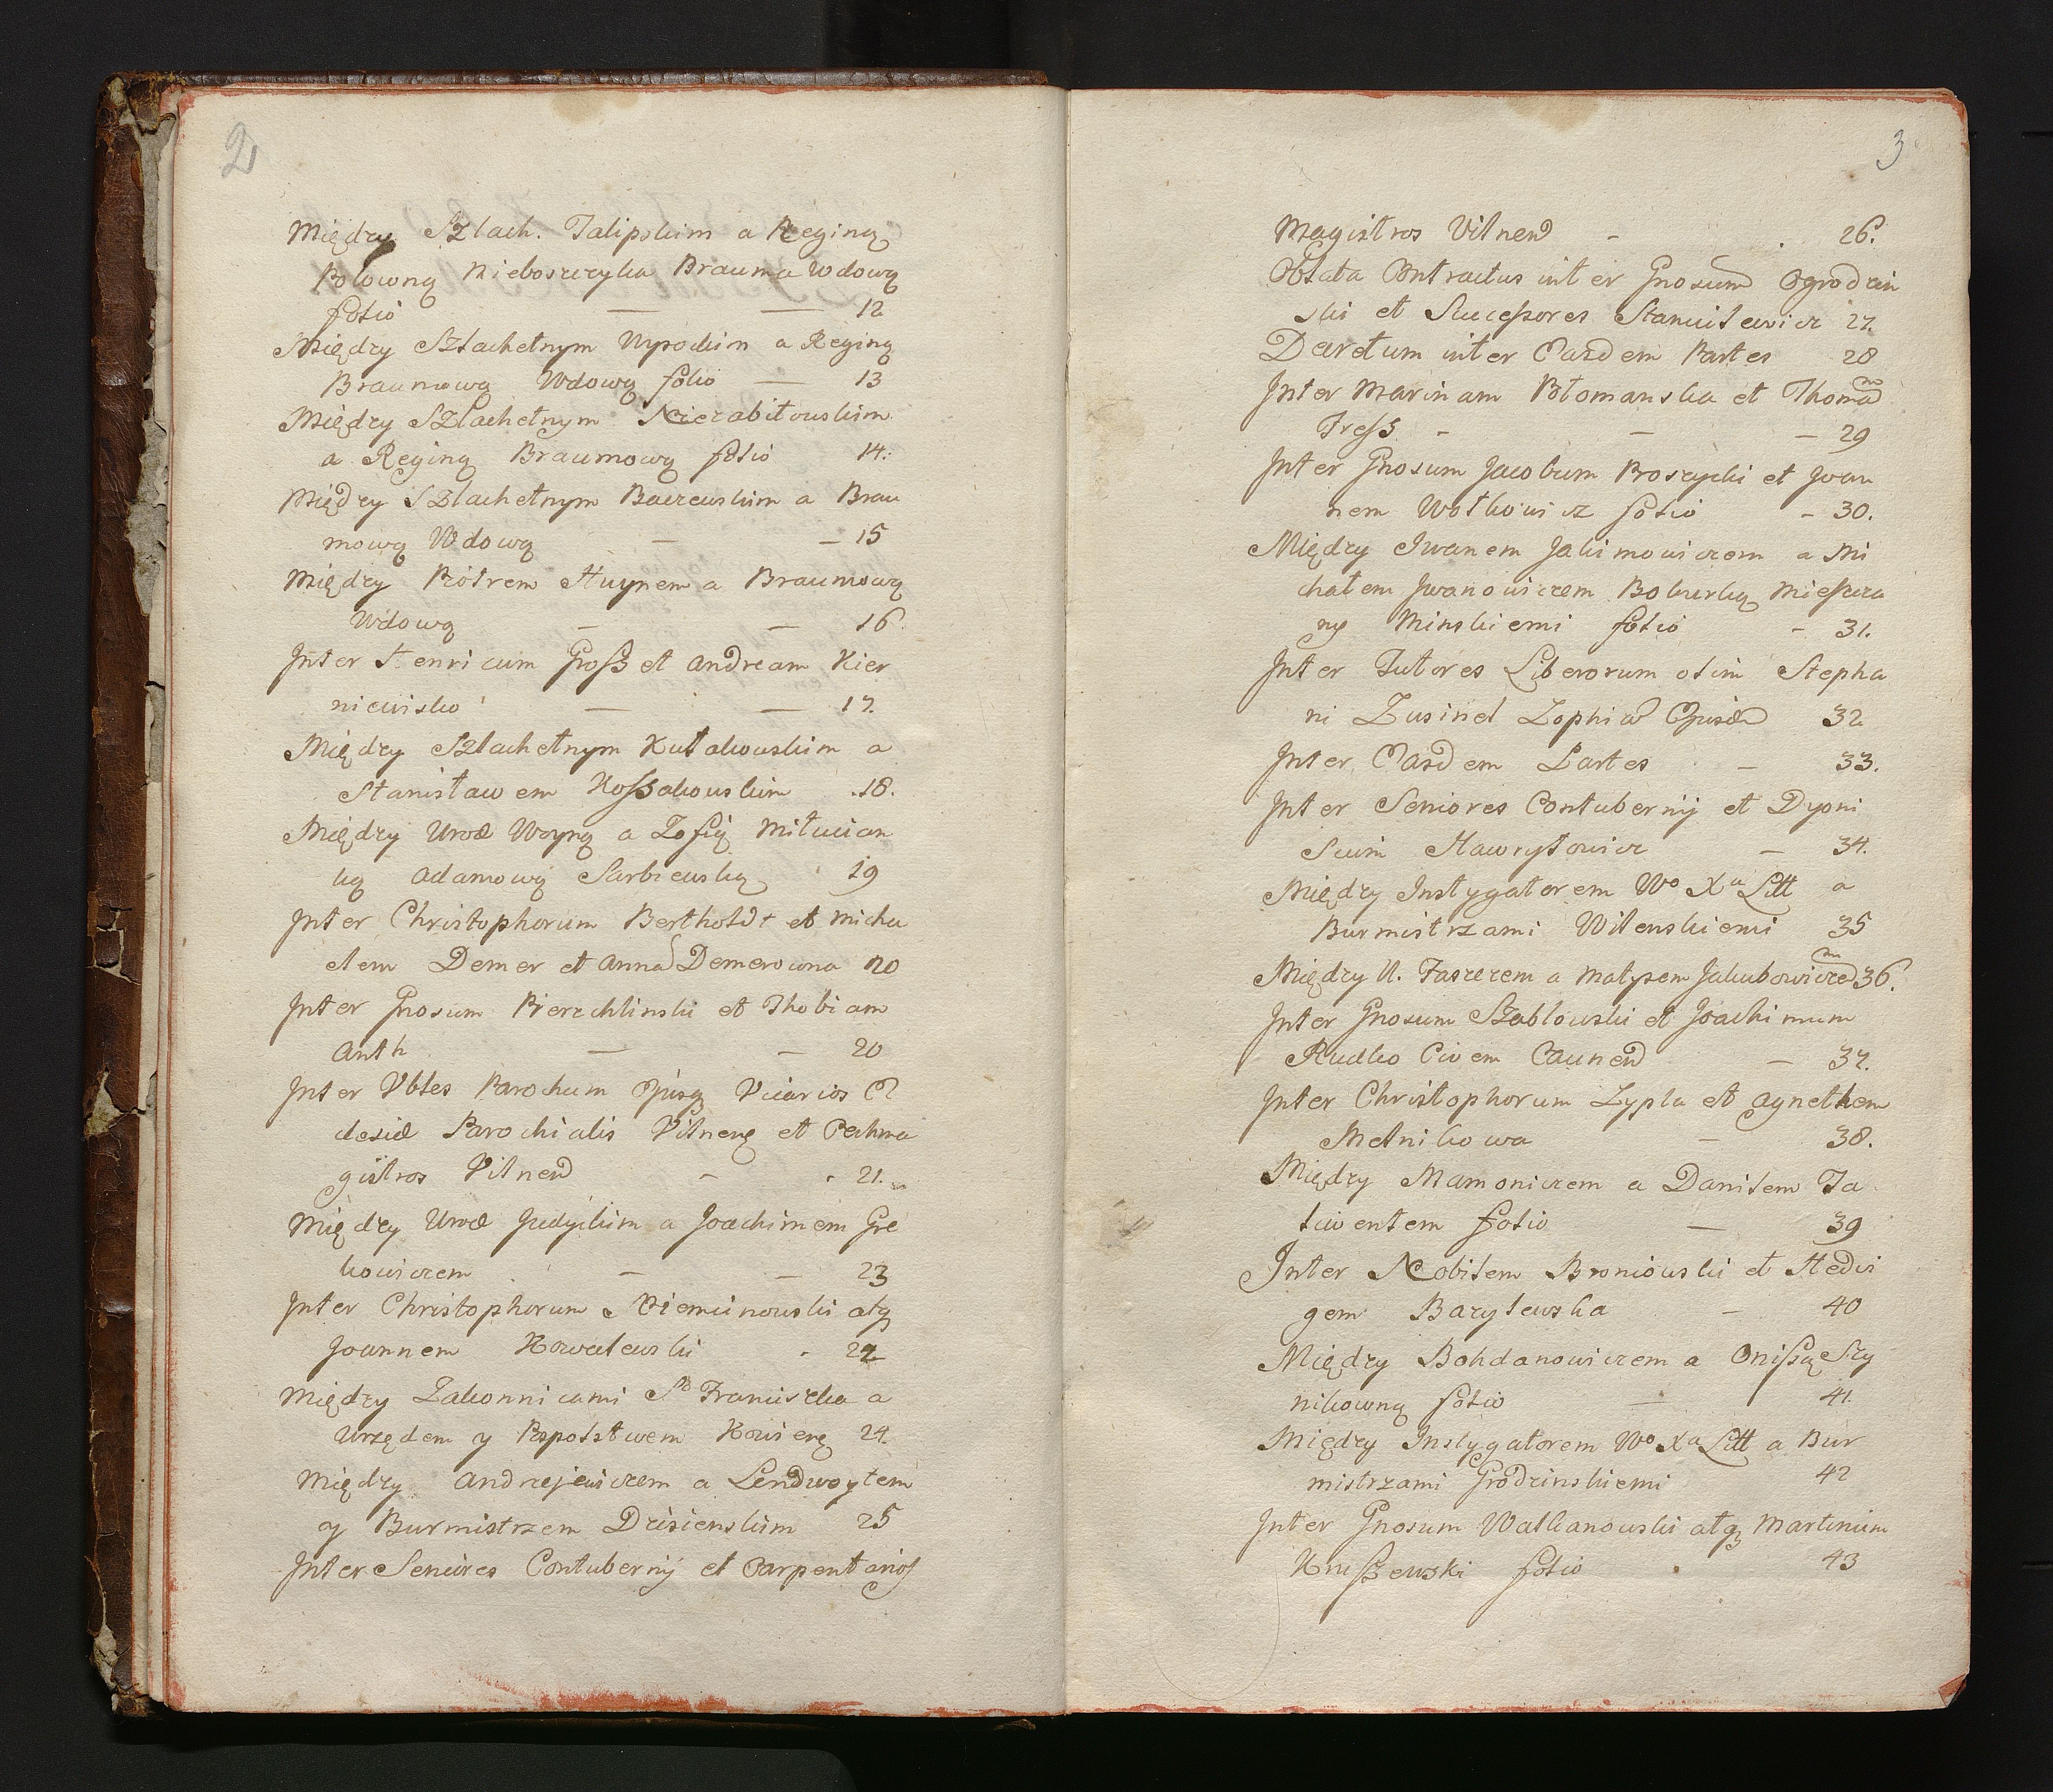 2
Między Szlach. Talipskim a Reginą
Polowną Nieboszczyka Brauma Wdową
folio — — 12
Między Szlachetnym Wysockim a Reginą
Braumową Wdową folio — 13
Między Szlachetnym Niezabitowskim
a Reginą Braumową folio 14.
Między Szlachetnym Baczewskim a Brau
mową Wdową — — 15
Między Piotrem Huynem a Braumową
Wdową — — 16
Inter Henricum Groß et Andream Kier
niewisko — — 17.
Między Szlachetnym Kutakowskim a
Stanisławem Koßakowskim .18.
Między Urod Woyną a Zofią Mitucian
ką Adamową Sarbiewską 19
Inter Christophorum Berthold et Micha
elem Demer et Anna Demerowna 20
Inter Gnosum Pierzchlinski et Thobiam
Anth — — 20
Inter Vbles Parochum Ejusq Vicarios E
clesiæ Parochialis Vilneng et Pechma
gistros Vilnen - . 21.
Między Urod Judyckim a Joachimem Gre
kowiczem — — 23
Inter Christophorum Niemcinowski atq
Joannem Kowalewski . 22
Między Zakonnicami So Franciszka a
Urzędem y Pospolstwem Kowieng 24.
Między Andrzejewiczem a Lendwoytem
y Burmistrzem Dzisienskim 25
Inter Seniores Contubernij et Carpentarios
3
Magistros Vilnen - . 26.
Oblata Contractus inter Gnosum Ogrodzin
ski et Sucessores Stanкilewicz 27.
Decretum inter Easdem Partes 28
Inter Marinam Potomanska et Thomam
Freß - — — 29
Inter Gnosum Jacobum Proszycki et Joan
nem Wolkowicz folio - 30.
Między Iwanem Jakimowiczem a Mi
chałem Iwanowiczem Bokurką Mießcza
ny Minskiemi folio - 31.
Inter Tutores Liberorum olim Stepha
ni Zusinel Zophiæ Ejusdem 32
Inter Easdem Partes — 33.
Inter Seniores Contubernij et Dyoni
sium Hawryłowicz — 34.
Między Instygatorem Wo Xa Litt a
Burmistrzami Wilenskiemi 35
Między U. Taszerem a Małysem Jakubowiczem 36.
Inter Gnosum Szablowski et Joachimum
Rudko Civem Caunen — 37.
Inter Christophorum Zypla et Agnethem
Melnikowa — 38.
Między Mamoniczem a Danilem Ta
lwentem folio — 39
Inter Nobilem Broniowski et Hedvi
gem Barylewska — 40
Między Bohdanowiczem a Onißą Szy
nikowną folio — 41.
Między Instygatorem Wo Xa Litt a Bur
mistrzami Grodzinskiemi 42
Inter Gnosum Walkanowski atq Martinum
Krußewski folio . 43